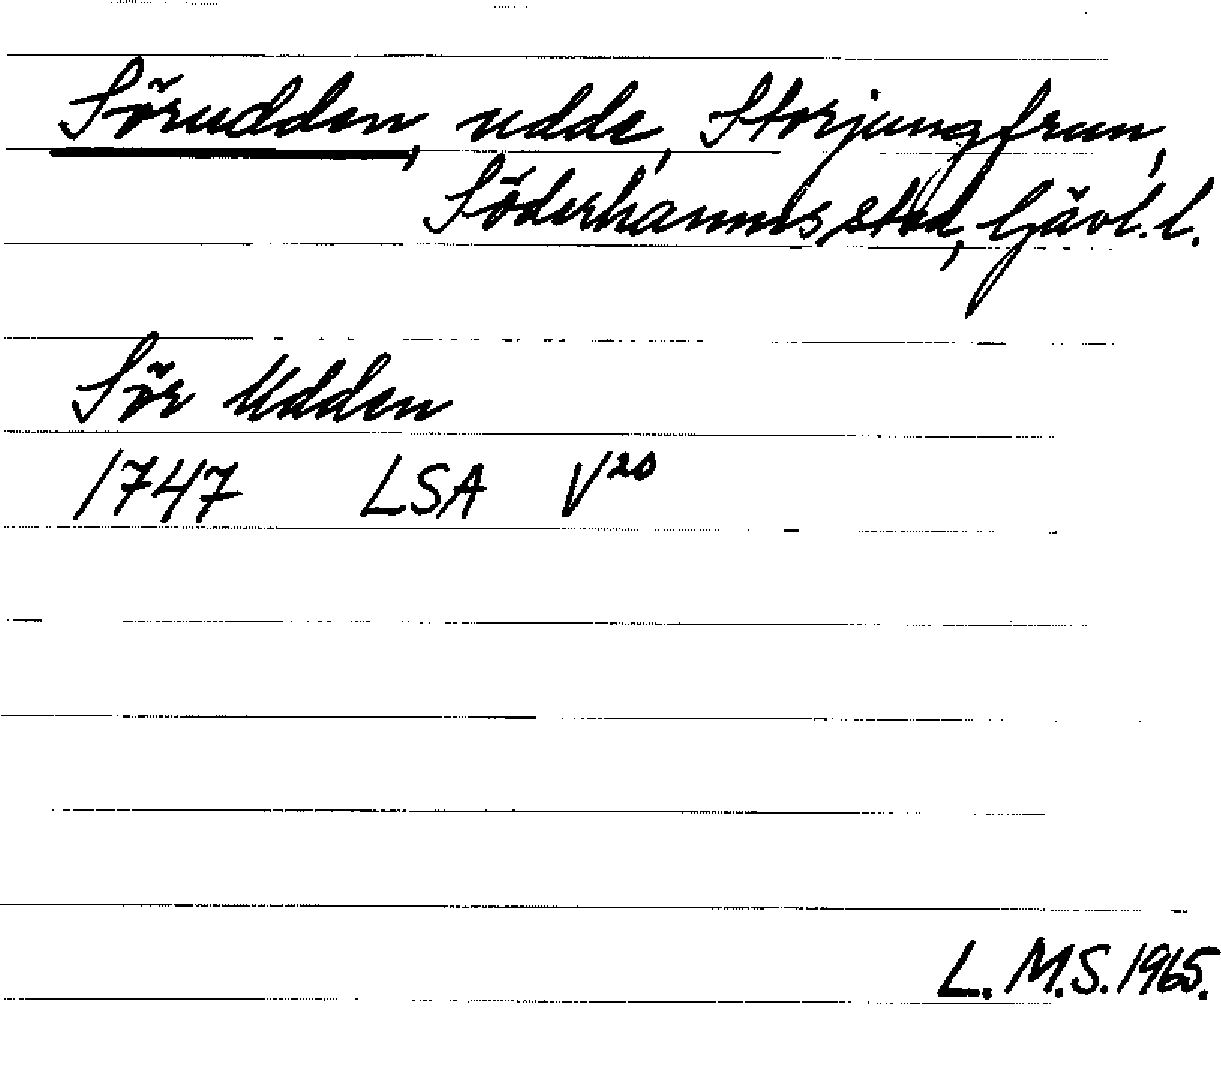 Sörudden, udde, Storjungfrun,
Söderhamns stad, Gävl.l.
Sör Udden
1747 LSA V20
L.M.S.1965.